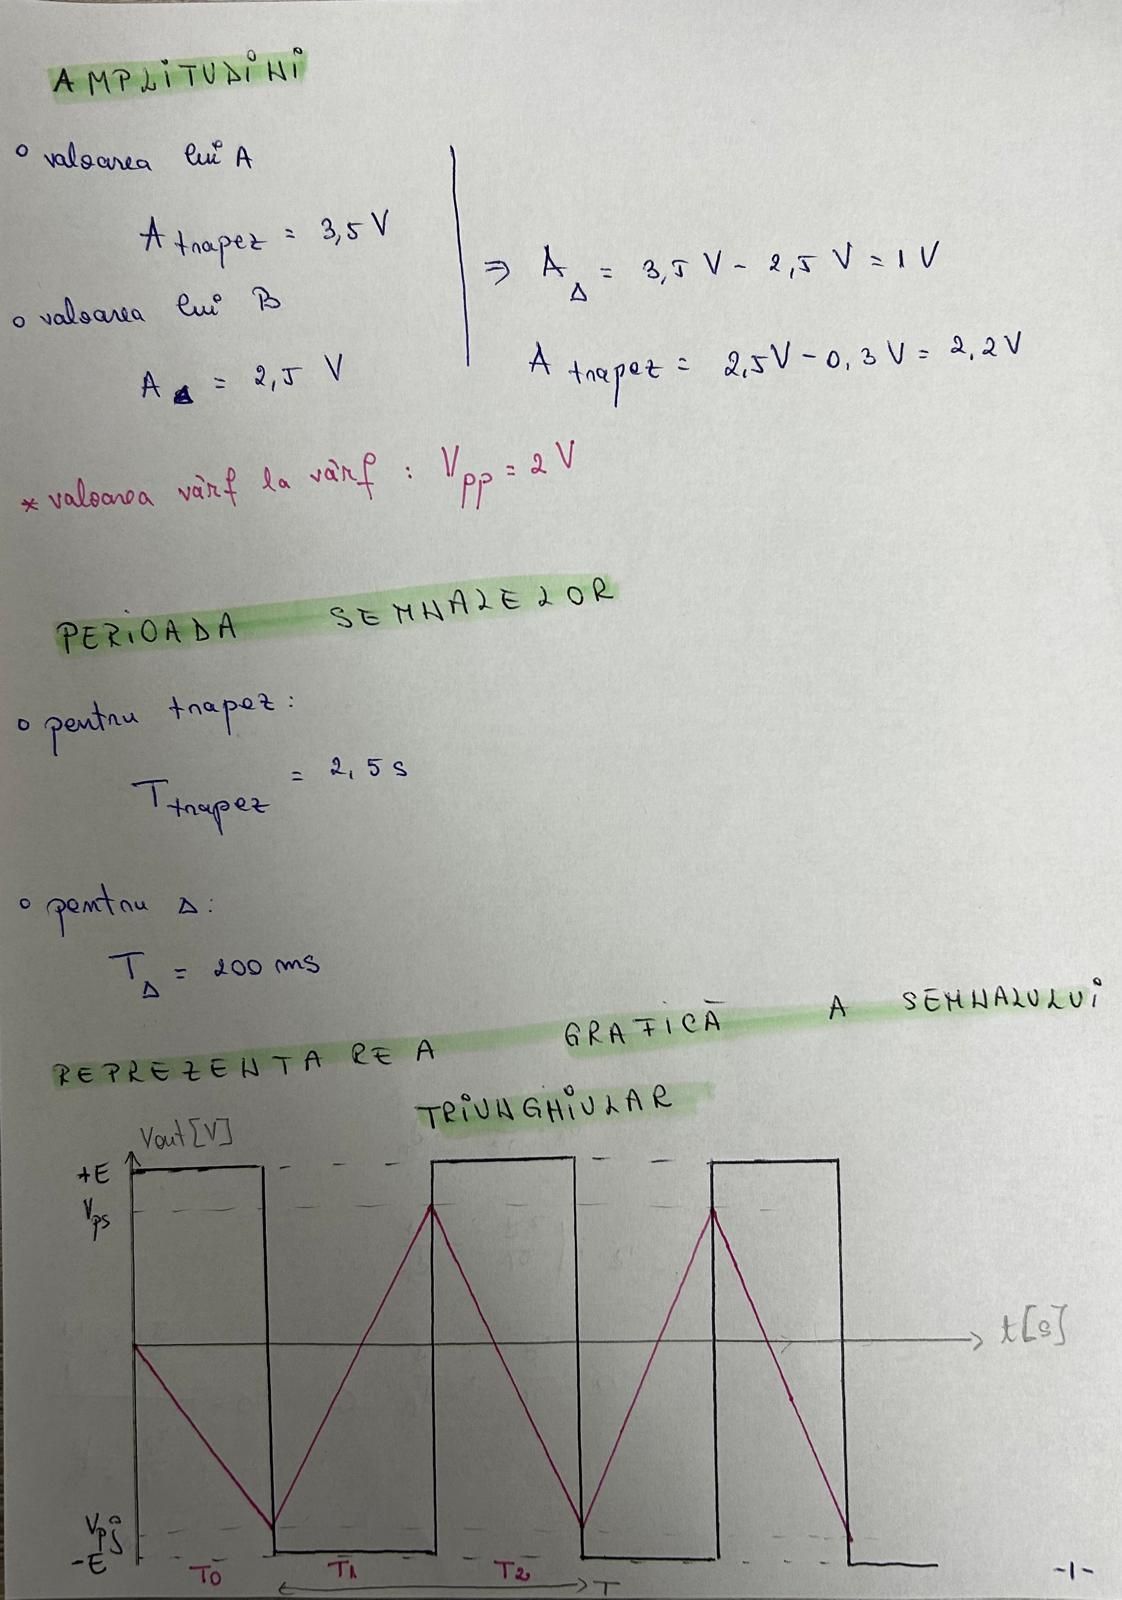 AMPLITUDINI
valoarea lui A
A trapez = 3,5 V
valoarea lui B
A Δ = 2,5 V
⇒ A Δ = 3,5 V - 2,5 V = 1 V
A trapez = 2,5V - 0,3V = 2,2V
* valoarea vârf la vârf : Vpp = 2 V
PERIOADA SEMNALELOR
pentru trapez:
T trapez = 2,5 s
pentru Δ:
T Δ = 200 ms
REPREZENTAREA GRAFICĂ A SEMNALULUI
TRIUNGHIULAR
Vout [V]
+E
Vps
t[s]
Vpj
-E
T0 T1 T2
T
-1-